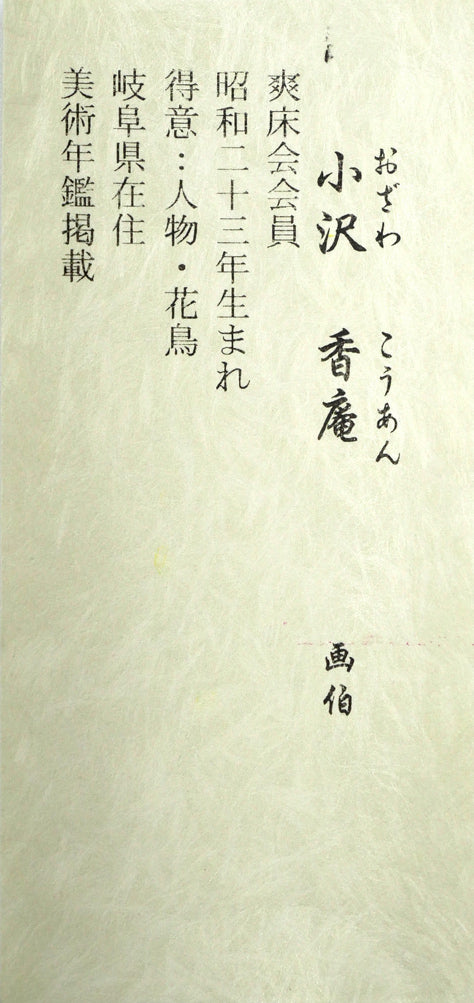 おざわ こうあん
小沢 香庵 画伯
爽床会会員
昭和二十三年生まれ
得意：人物・花鳥
岐阜県在住
美術年鑑掲載